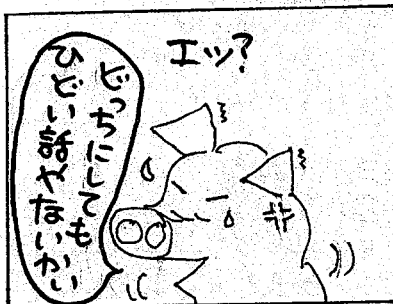 エッ?
どっちにしても
ひどい話やないかい